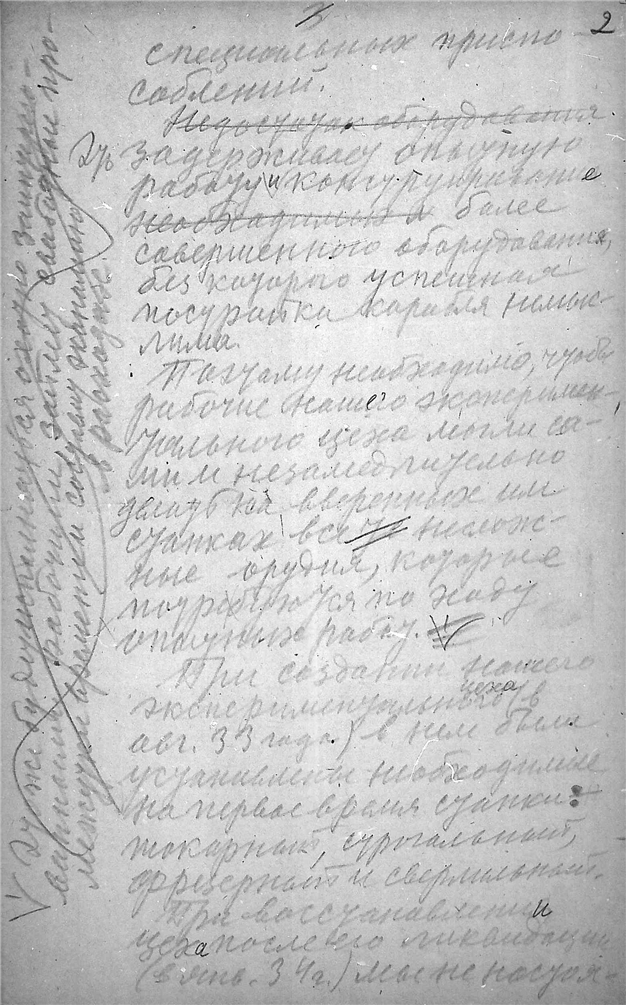 2
специальных приспо-
соблений.
Недостаток оборудования
задерживает опытную
работу и конструирование
необходимых более
совершенного оборудования,
без которого успешная
постройка корабля немыс-
лима.
Поэтому необходимо, чтобы
рабочие нашего эксперимен-
тального цеха могли са-
ми и незамедлительно
делать на вверенных им
станках все те неслож-
ные орудия, которые
потребуются по ходу
опытных работ. V
При создании нашего
экспериментального цеха (в
авг. 33 года) в нем были
установлены необходимые
на первое время станки:
токарный, строгальный,
фрезерный и сверлильный.
При восстановлении
цеха после его ликвидации
(в янв. 34 г.) мы не настоя-
V Тут же будут
рабочим
между временем